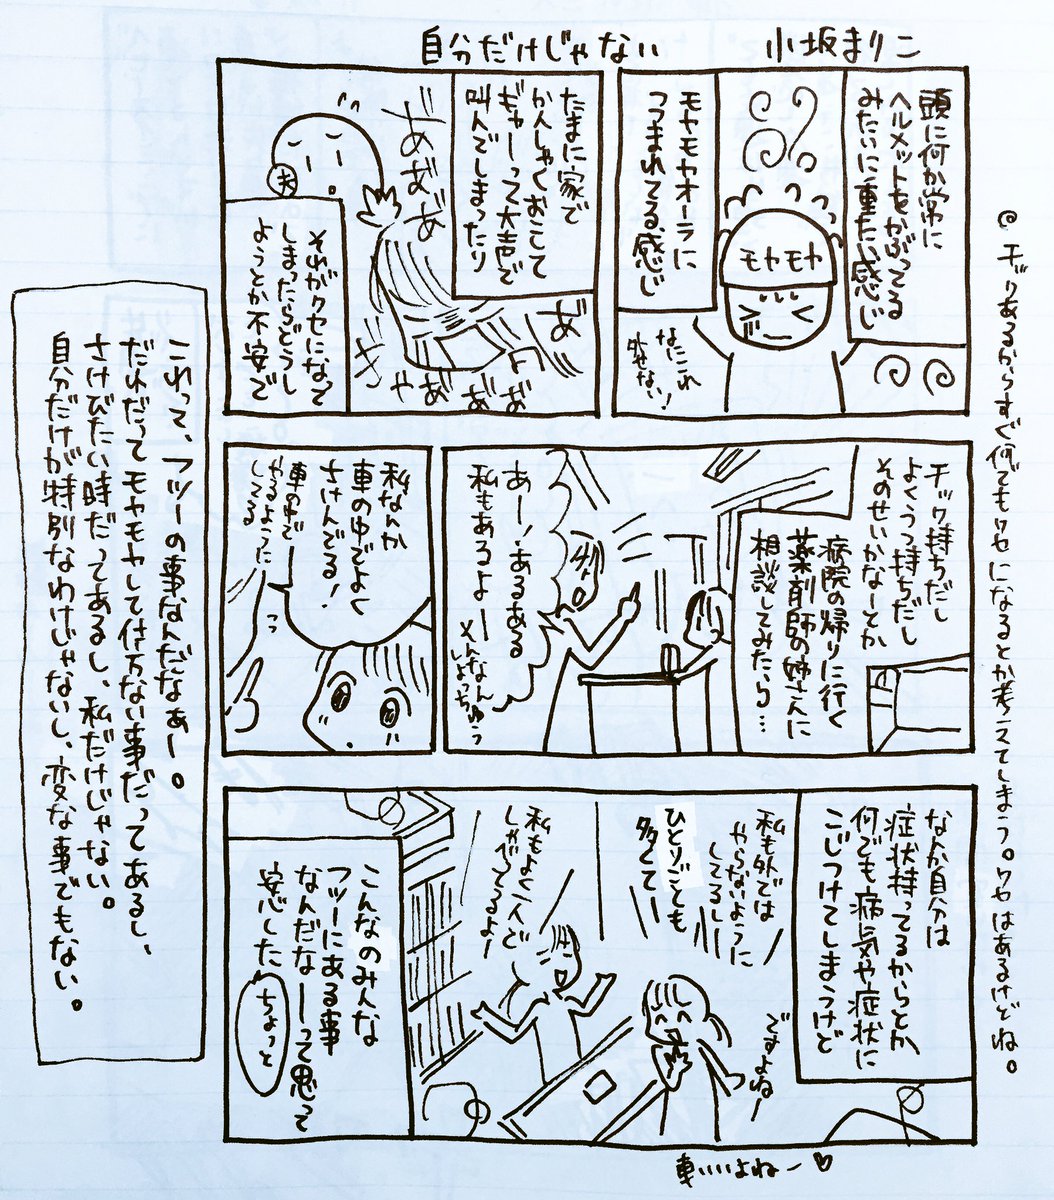 自分だけじゃない
小坂まりこ
頭に何か常に
ヘルメットをかぶってる
みたいに重たい感じ
モヤモヤ
なにこれ
外せない!
モヤモヤオーラに
つつまれてる感じ
たまに家で
かんしゃくおこして
ギャーって大声で
叫んでしまったり
あ゛あ゛あ゛
ぎゃあ゛あ゛あ゛
あ゛
夫
それがクセになって
しまったらどうし
ようとか不安で
チック持ちだし
よくうつ持ちだし
そのせいかなーてか
病院の帰りに行く
薬剤師の姉さんに
相談してみたら…
あー!あるある
私もあるよー
そんなんしゅっ
しょっちゅう
私なんか
車の中でよく
さけんでる!
車の中で
やるように
してる
なんか自分は
症状持ってるからとか、
何でも病気や症状に
こじつけてしまうけど
私も外では
やらないように
してるしー
ひとりごとも
多くてー
ですよねー
私もよく一人で
しゃべってるよー
こんなのみんな
フツーにある事
なんだなーって思って
安心した
ちょっと
車いいよねー♡
これって、フツーの事なんだなぁー。
だれだってモヤモヤして仕方ない事だってあるし、
さけびたい時だってあるし、私だけじゃない。
自分だけが特別なわけじゃないし、変な事でもない。
@チックあるからすぐ何でもクセになるとか考えてしまう。クセはあるけどね。